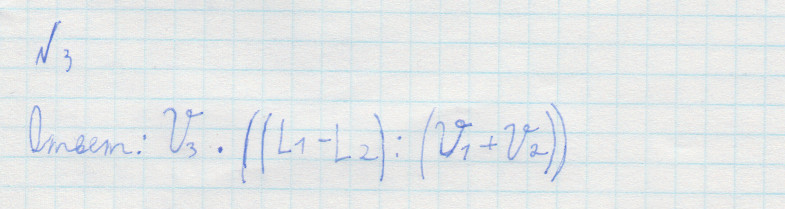 №3
Ответ: V₃ · ((L₁ - L₂) : (V₁ + V₂))